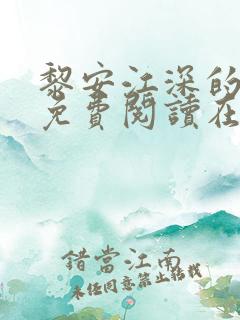 黎安江深的
免費閱讀在
錯當江南
未经同意禁止转载